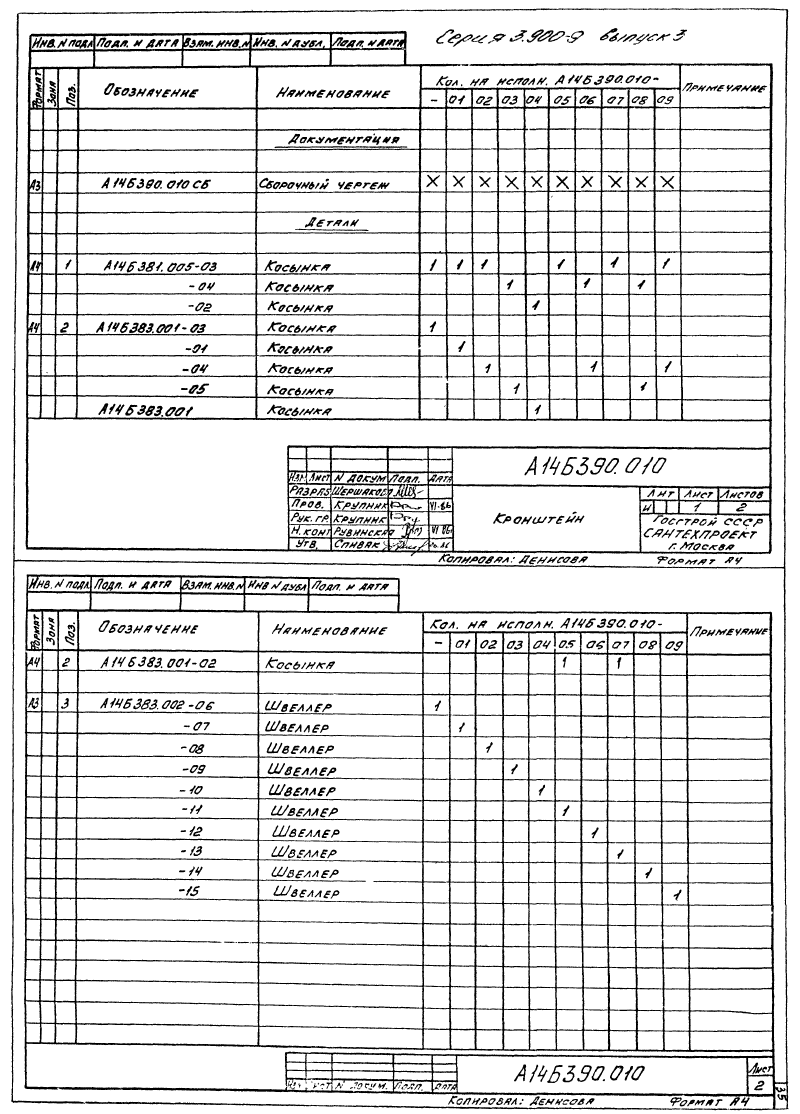 Серия 3.900-9 выпуск 3
Инв. N подл Подп. и дата Взам. инв. N Инв. N дубл. Подп. и дата
Формат Зона Поз. Обозначение Наименование Кол. на исполн. А14Б390.010- Примечание
- 01 02 03 04 05 06 07 08 09
Документация
А3 А14Б390.010 СБ Сборочный чертеж X X X X X X X X X X
Детали
А4 1 А14Б381.005-03 Косынка 1 1 1 1 1 1
-04 Косынка 1 1 1
-02 Косынка 1
А4 2 А14Б383.001-03 Косынка 1
-01 Косынка 1
-04 Косынка 1 1 1
-05 Косынка 1 1
А14Б383.001 Косынка 1
А14Б390.010
Изм Лист N докум Подп. Дата
Разраб Шершакова
Пров. Крупник VI-86
Рук. гр. Крупник
Н. конт Рувинская VI 86
Утв. Спивак
Кронштейн
Лит Лист Листов
И 1 2
Госстрой СССР
Сантехпроект
г. Москва
Копировал: Денисова Формат А4
Инв. N подл Подп. и дата Взам. инв. N Инв N дубл Подп. и дата
Формат Зона Поз. Обозначение Наименование Кол. на исполн. А14Б390.010- Примечание
- 01 02 03 04 05 06 07 08 09
А4 2 А14Б383.001-02 Косынка 1 1
А3 3 А14Б383.002-06 Швеллер 1
-07 Швеллер 1
-08 Швеллер 1
-09 Швеллер 1
-10 Швеллер 1
-11 Швеллер 1
-12 Швеллер 1
-13 Швеллер 1
-14 Швеллер 1
-15 Швеллер 1
Изм Лист N докум. Подп. Дата
А14Б390.010
Лист
2
Копировал: Денисова Формат А4
35